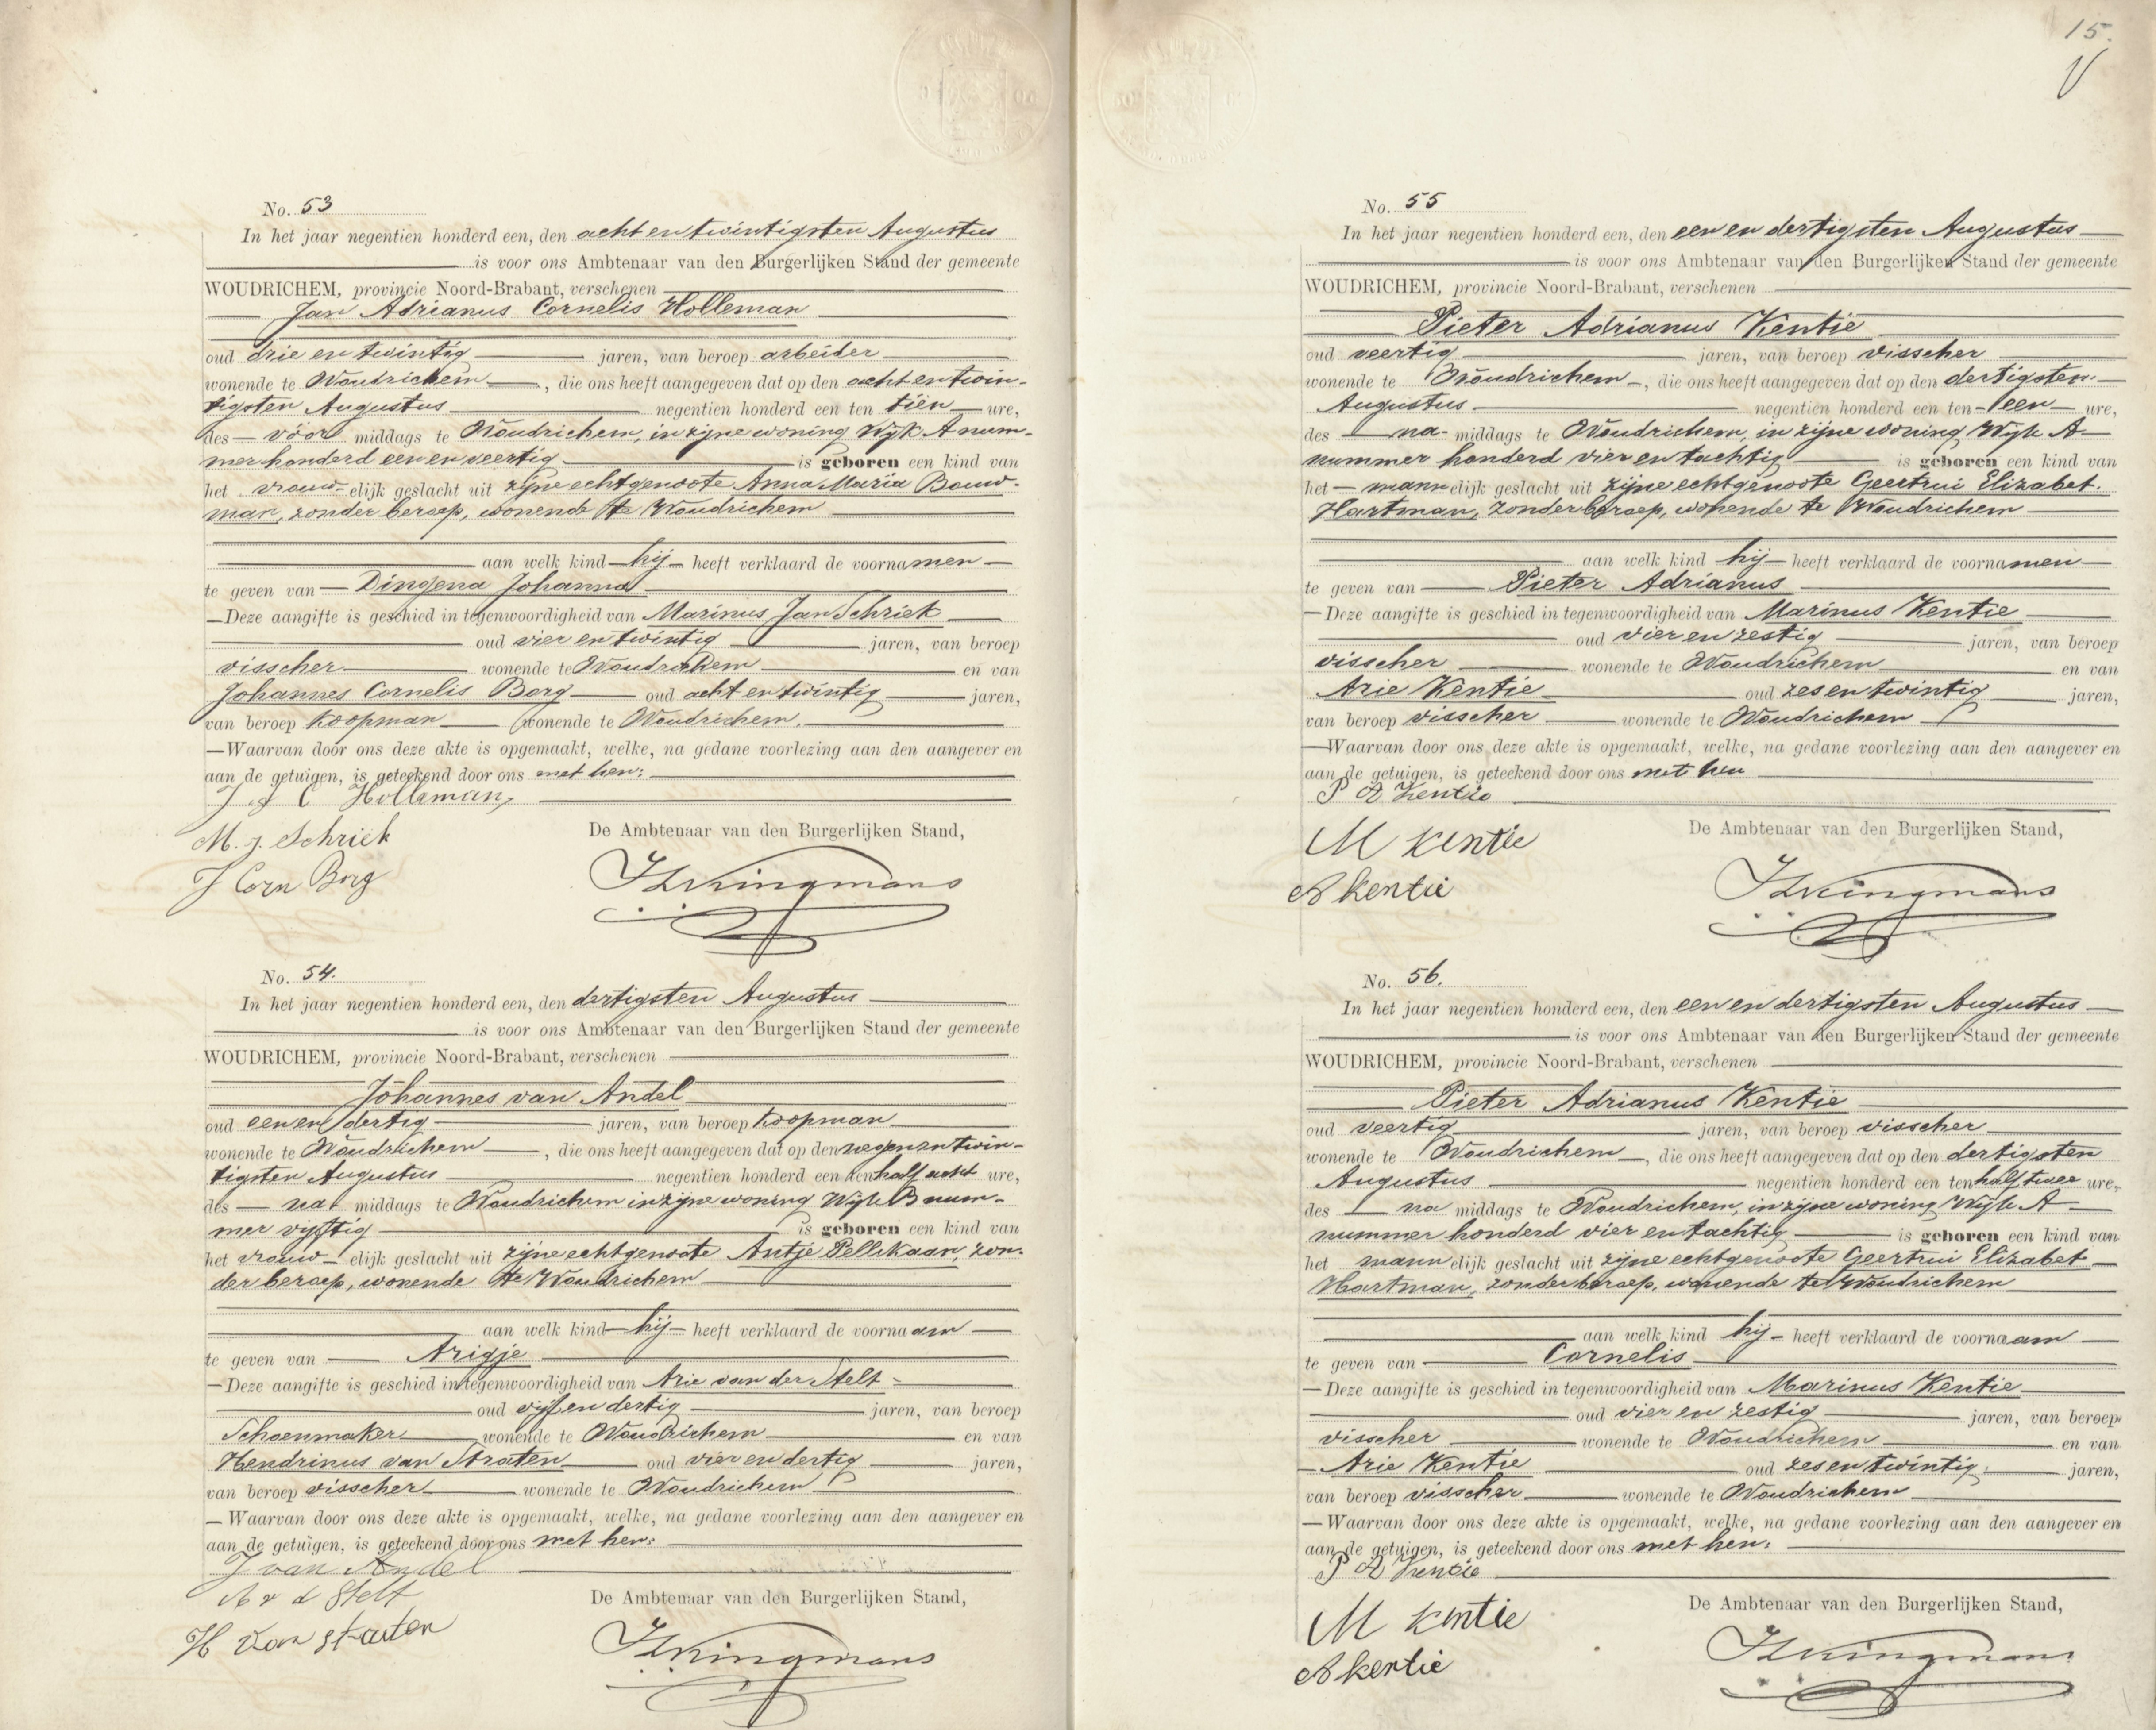 No. 53
In het jaar negentien honderd een, den acht en twintigsten Augustus
is voor ons Ambtenaar van den Burgerlijken Stand der gemeente
WOUDRICHEM, provincie Noord-Brabant, verschenen
Jan Adrianus Cornelis Holleman
oud drie en twintig jaren, van beroep arbeider
wonende te Woudrichem, die ons heeft aangegeven dat op den acht en twin-
tigsten Augustus negentien honderd een ten tien ure,
des vóór middags te Woudrichem, in zijne woning Wijk A num-
mer honderd een en veertig is geboren een kind van
het vrouw-elijk geslacht uit zijne echtgenoote Anna Maria Bouw-
man, zonder beroep, wonende te Woudrichem
aan welk kind hij heeft verklaard de voornamen
te geven van Dingena Johanna
Deze aangifte is geschied in tegenwoordigheid van Marinus Jan Schriek
oud vier en twintig jaren, van beroep
visscher wonende te Woudrichem en van
Johannes Cornelis Borg oud acht en twintig jaren,
van beroep koopman wonende te Woudrichem.
Waarvan door ons deze akte is opgemaakt, welke, na gedane voorlezing aan den aangever en
aan de getuigen, is geteekend door ons met hen:
J A C Holleman,
M. J. Schriek
De Ambtenaar van den Burgerlijken Stand,
J Corn Borg
No. 54.
In het jaar negentien honderd een, den dertigsten Augustus
is voor ons Ambtenaar van den Burgerlijken Stand der gemeente
WOUDRICHEM, provincie Noord-Brabant, verschenen
Johannes van Andel
oud een en dertig jaren, van beroep koopman
wonende te Woudrichem, die ons heeft aangegeven dat op den negen en twin-
tigsten Augustus negentien honderd een ten half acht ure,
des na middags te Woudrichem in zijne woning Wijk B num-
mer vijftig is geboren een kind van
het vrouw-elijk geslacht uit zijne echtgenoote Antje Pellikaan, zon-
der beroep, wonende te Woudrichem
aan welk kind hij heeft verklaard de voornaam
te geven van Arigje
Deze aangifte is geschied in tegenwoordigheid van Arie van der Stelt
oud vijf en dertig jaren, van beroep
Schoenmaker wonende te Woudrichem en van
Hendrinus van Straten oud vier en dertig jaren,
van beroep visscher wonende te Woudrichem
Waarvan door ons deze akte is opgemaakt, welke, na gedane voorlezing aan den aangever en
aan de getuigen, is geteekend door ons met hen:
J van Andel
A v d Stelt
De Ambtenaar van den Burgerlijken Stand,
H van Straten
15.
No. 55
In het jaar negentien honderd een, den een en dertigsten Augustus
is voor ons Ambtenaar van den Burgerlijken Stand der gemeente
WOUDRICHEM, provincie Noord-Brabant, verschenen
Pieter Adrianus Kentie
oud veertig jaren, van beroep visscher
wonende te Woudrichem, die ons heeft aangegeven dat op den dertigsten
Augustus negentien honderd een ten een ure,
des na- middags te Woudrichem, in zijne woning Wijk A
nummer honderd vier en tachtig is geboren een kind van
het mannelijk geslacht uit zijne echtgenoote Geertrui Elizabet
Hartman, zonder beroep, wonende te Woudrichem
aan welk kind hij heeft verklaard de voornamen
te geven van Pieter Adrianus
Deze aangifte is geschied in tegenwoordigheid van Marinus Kentie
oud vier en zestig jaren, van beroep
visscher wonende te Woudrichem en van
Arie Kentie oud zes en twintig jaren,
van beroep visscher wonende te Woudrichem
Waarvan door ons deze akte is opgemaakt, welke, na gedane voorlezing aan den aangever en
aan de getuigen, is geteekend door ons met hen
P A Kentie
M Kentie
De Ambtenaar van den Burgerlijken Stand,
A Kentie
No. 56.
In het jaar negentien honderd een, den een en dertigsten Augustus
is voor ons Ambtenaar van den Burgerlijken Stand der gemeente
WOUDRICHEM, provincie Noord-Brabant, verschenen
Pieter Adrianus Kentie
oud veertig jaren, van beroep visscher
wonende te Woudrichem, die ons heeft aangegeven dat op den dertigsten
Augustus negentien honderd een ten half twee ure,
des na middags te Woudrichem, in zijne woning Wijk A
nummer honderd vier en tachtig is geboren een kind van
het mannelijk geslacht uit zijne echtgenoote Geertrui Elizabet
Hartman, zonder beroep, wonende te Woudrichem
aan welk kind hij heeft verklaard de voornaam
te geven van Cornelis
Deze aangifte is geschied in tegenwoordigheid van Marinus Kentie
oud vier en zestig jaren, van beroep
visscher wonende te Woudrichem en van
Arie Kentie oud zes en twintig jaren,
van beroep visscher wonende te Woudrichem
Waarvan door ons deze akte is opgemaakt, welke, na gedane voorlezing aan den aangever en
aan de getuigen, is geteekend door ons met hen:
P A Kentie
M Kentie
De Ambtenaar van den Burgerlijken Stand,
A Kentie